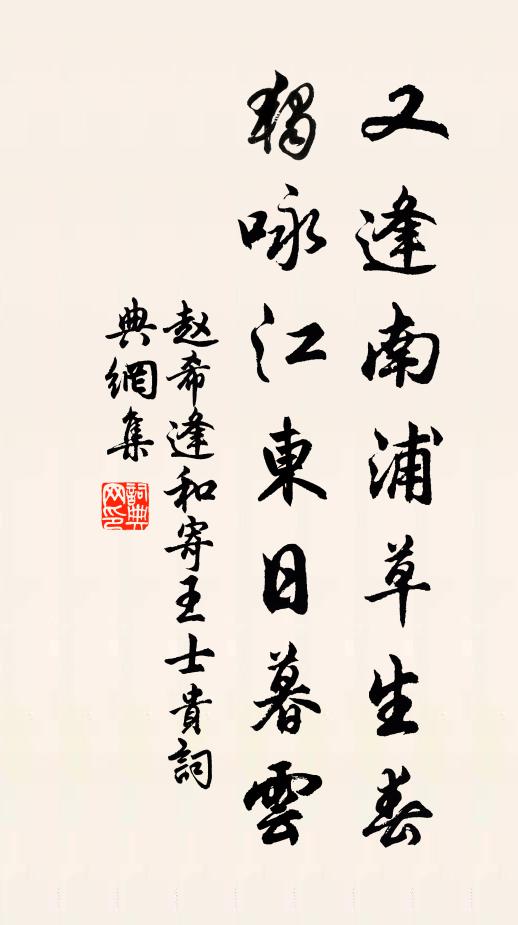 又逢南浦草生春
獨咏江東日暮雲
赵希逢和寄王士貴詞
典網集
詞典
网印